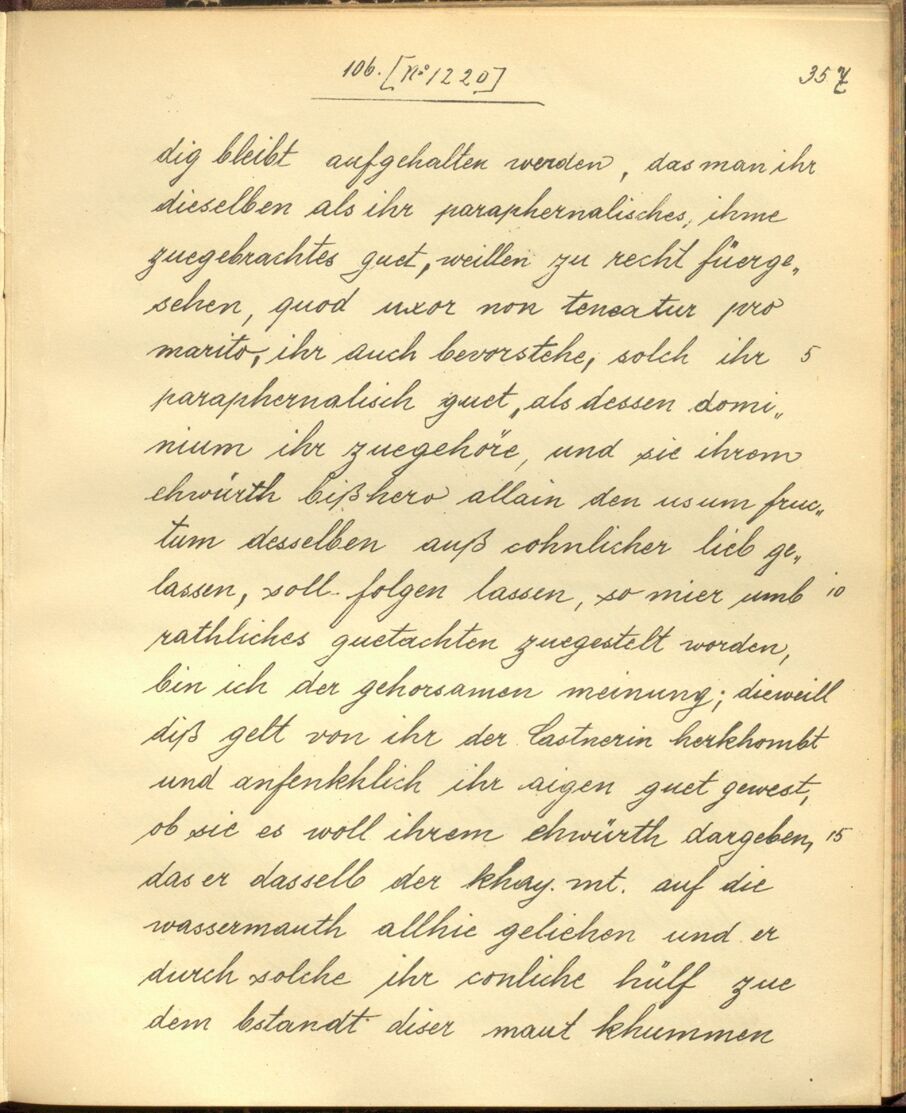 106. [No 1220]
357
dig bleibt aufgehalten werden, das man ihr
dieselben als ihr paraphernalisches, ihme
zuegebrachtes guet, weillen zu recht füerge„
sehen, quod uxor non teneatur pro
marito, ihr auch bevorstehe, solch ihr 5
paraphernalisch guet, als dessen domi„
nium ihr zuegehöre, und sie ihrem
ehwürth bißhero allain den usum fruc„
tum desselben auß cohnlicher lieb ge„
lassen, soll folgen lassen, so mier umb 10
rathliches guetachten zuegestelt worden,
bin ich der gehorsamen meinung; dieweill
diß gelt von ihr der Castnerin herkhombt
und anfenkhlich ihr aigen guet gewest,
ob sie es woll ihrem ehwürth dargeben, 15
das er dasselb der khay. mt. auf die
wassermauth allhie geliehen und er
durch solche ihr conliche hülf zue
dem bstandt diser maut khummen